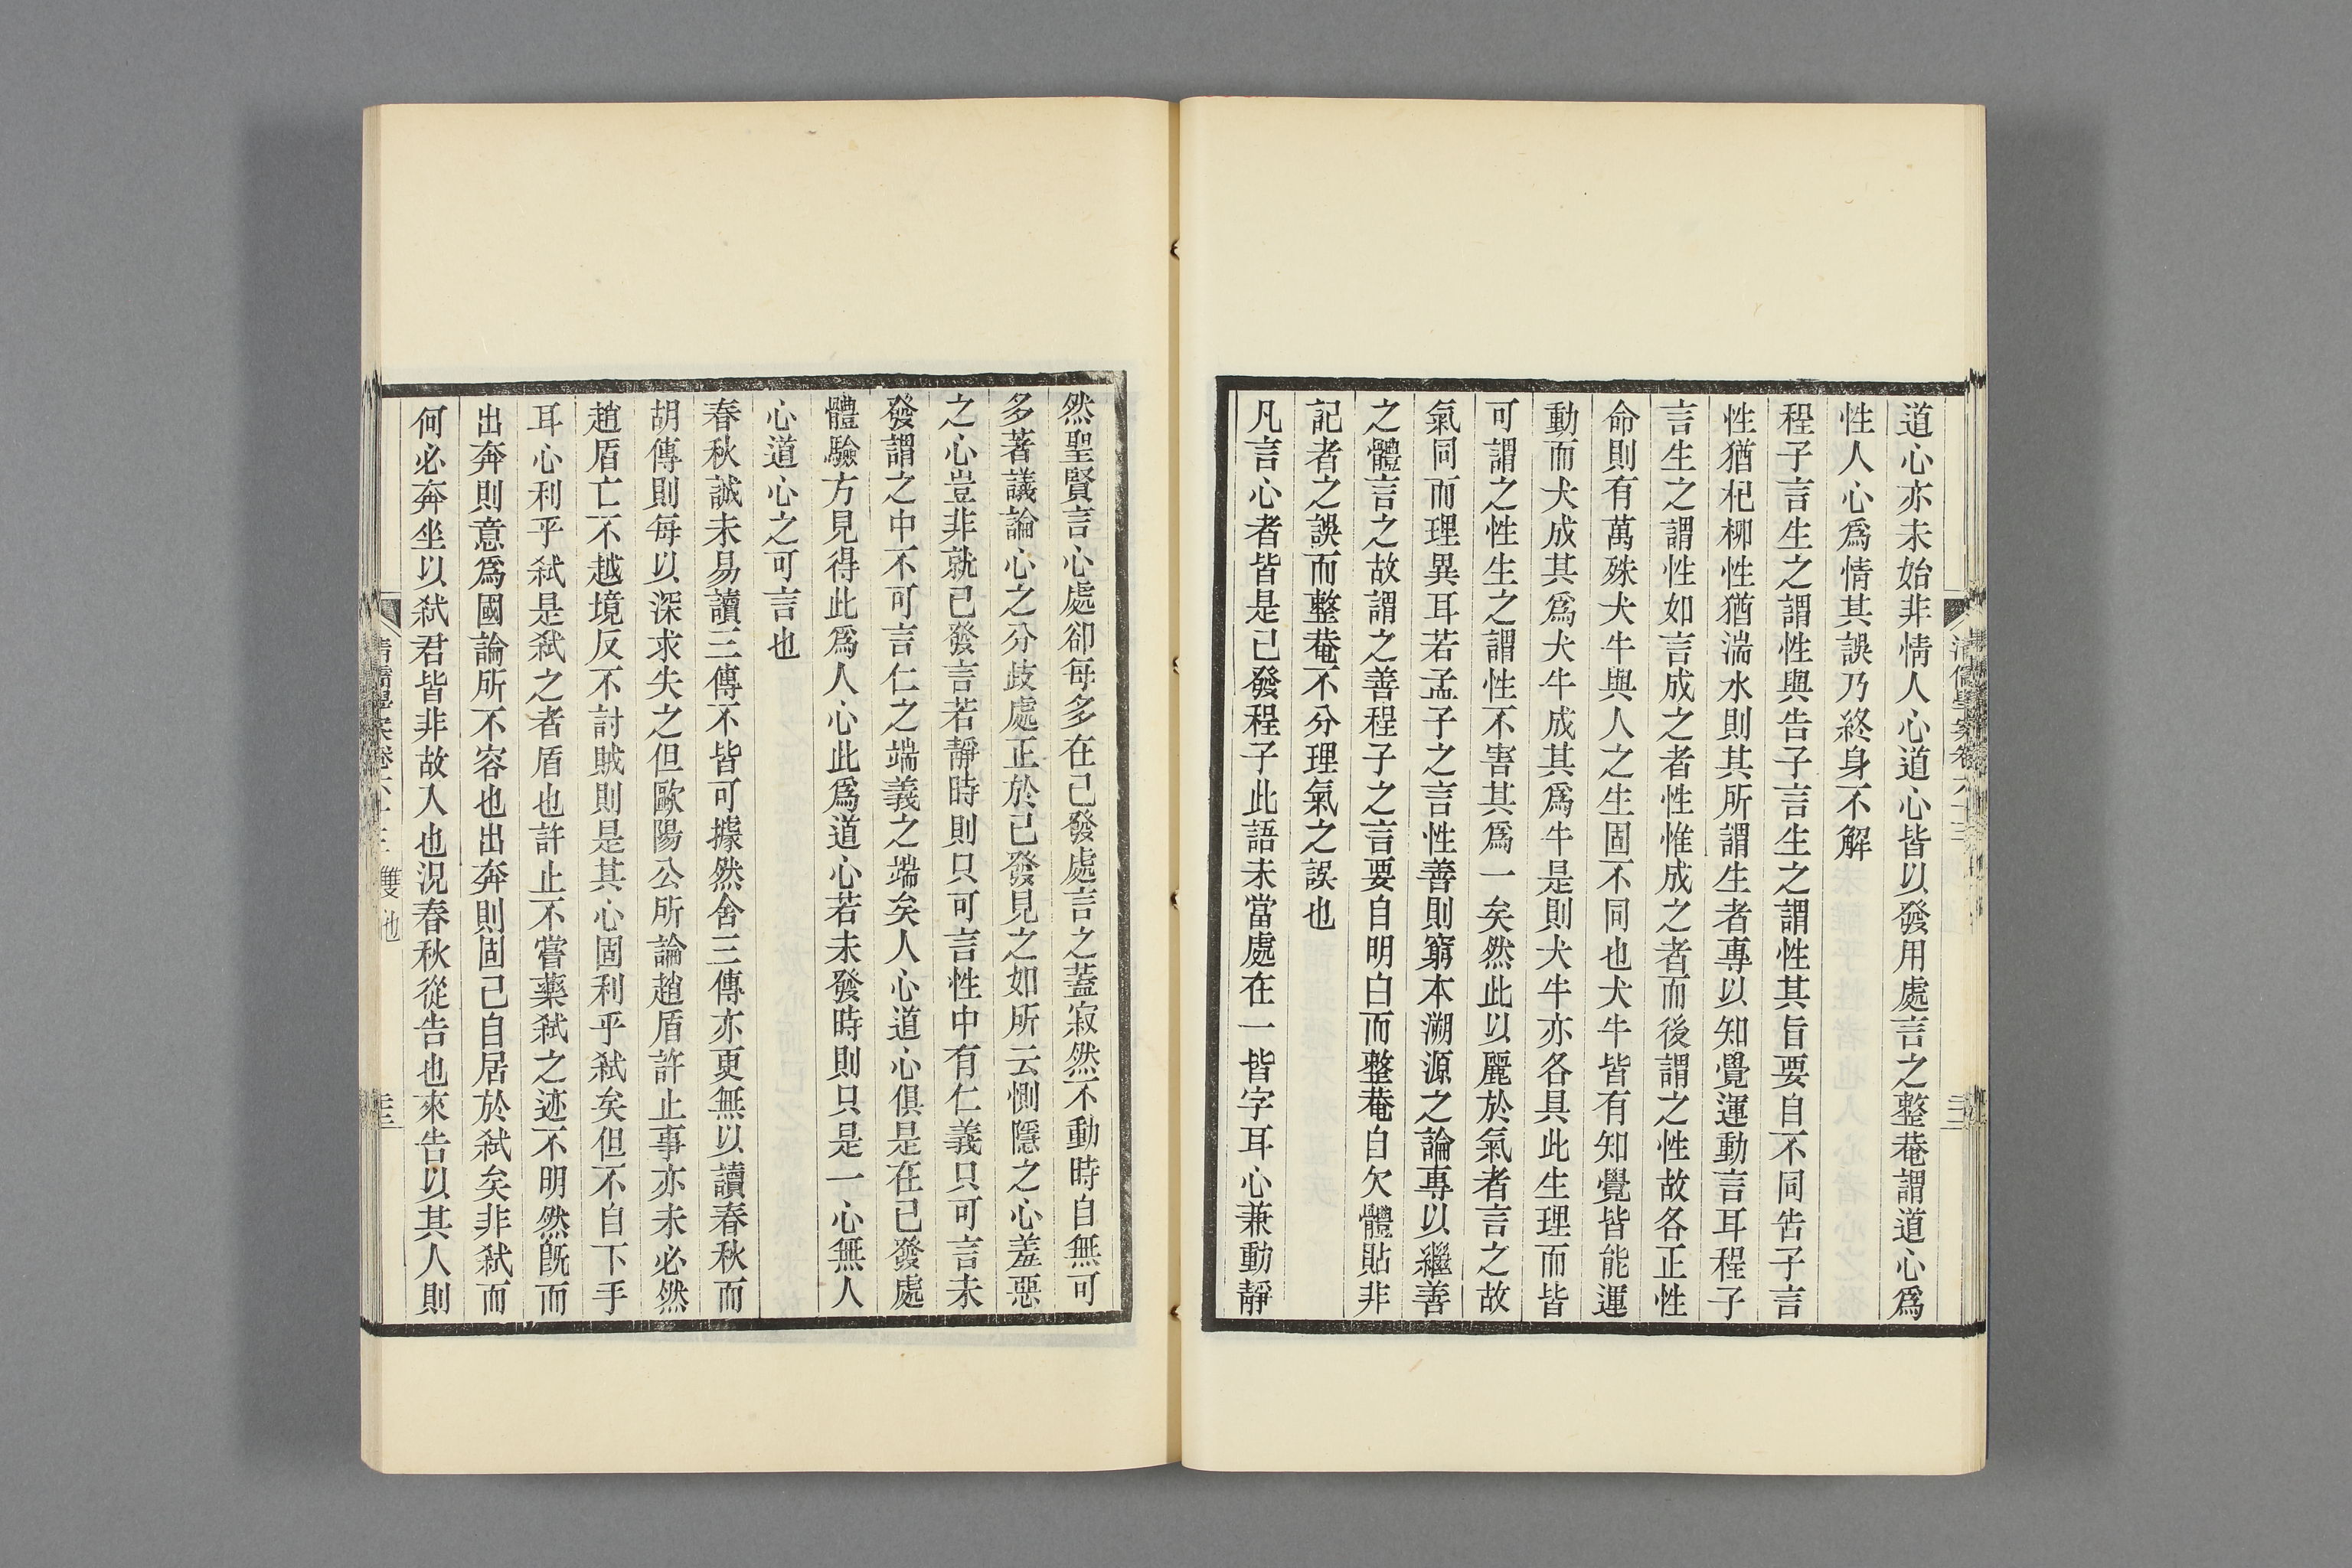 道心亦未始非情人心道心皆以發用處言之整菴謂道心爲
性人心爲情其誤乃終身不解
程子言生之謂性與告子言生之謂性其旨要自不同告子言
性猶杞柳性猶湍水則其所謂生者專以知覺運動言耳程子
言生之謂性如言成之者性惟成之者而後謂之性故各正性
命則有萬殊犬牛與人之生固不同也犬牛皆有知覺皆能運
動而犬成其爲犬牛成其爲牛是則犬牛亦各具此生理而皆
可謂之性生之謂性不害其爲一矣然此以麗於氣者言之故
氣同而理異耳若孟子之言性善則窮本溯源之論專以繼善
之體言之故謂之善程子之言要自明白而整菴自欠體貼非
記者之誤而整菴不分理氣之誤也
凡言心者皆是已發程子此語未當處在一皆字耳心兼動靜
然聖賢言心處卻每多在已發處言之蓋寂然不動時自無可
多著議論心之分歧處正於已發見之如所云惻隱之心羞惡
之心豈非就已發言若靜時則只可言性中有仁義只可言未
發謂之中不可言仁之端義之端矣人心道心俱是在已發處
體驗方見得此爲人心此爲道心若未發時則只是一心無人
心道心之可言也
春秋誠未易讀三傳不皆可據然舍三傳亦更無以讀春秋而
胡傳則每以深求失之但歐陽公所論趙盾許止事亦未必然
趙盾亡不越境反不討賊則是其心固利乎弒矣但不自下手
耳心利乎弒是弒之者盾也許止不嘗藥弒之迹不明然旣而
出奔則意爲國論所不容也出奔則固已自居於弒矣非弒而
何必奔坐以弒君皆非故入也況春秋從告也來告以其人則